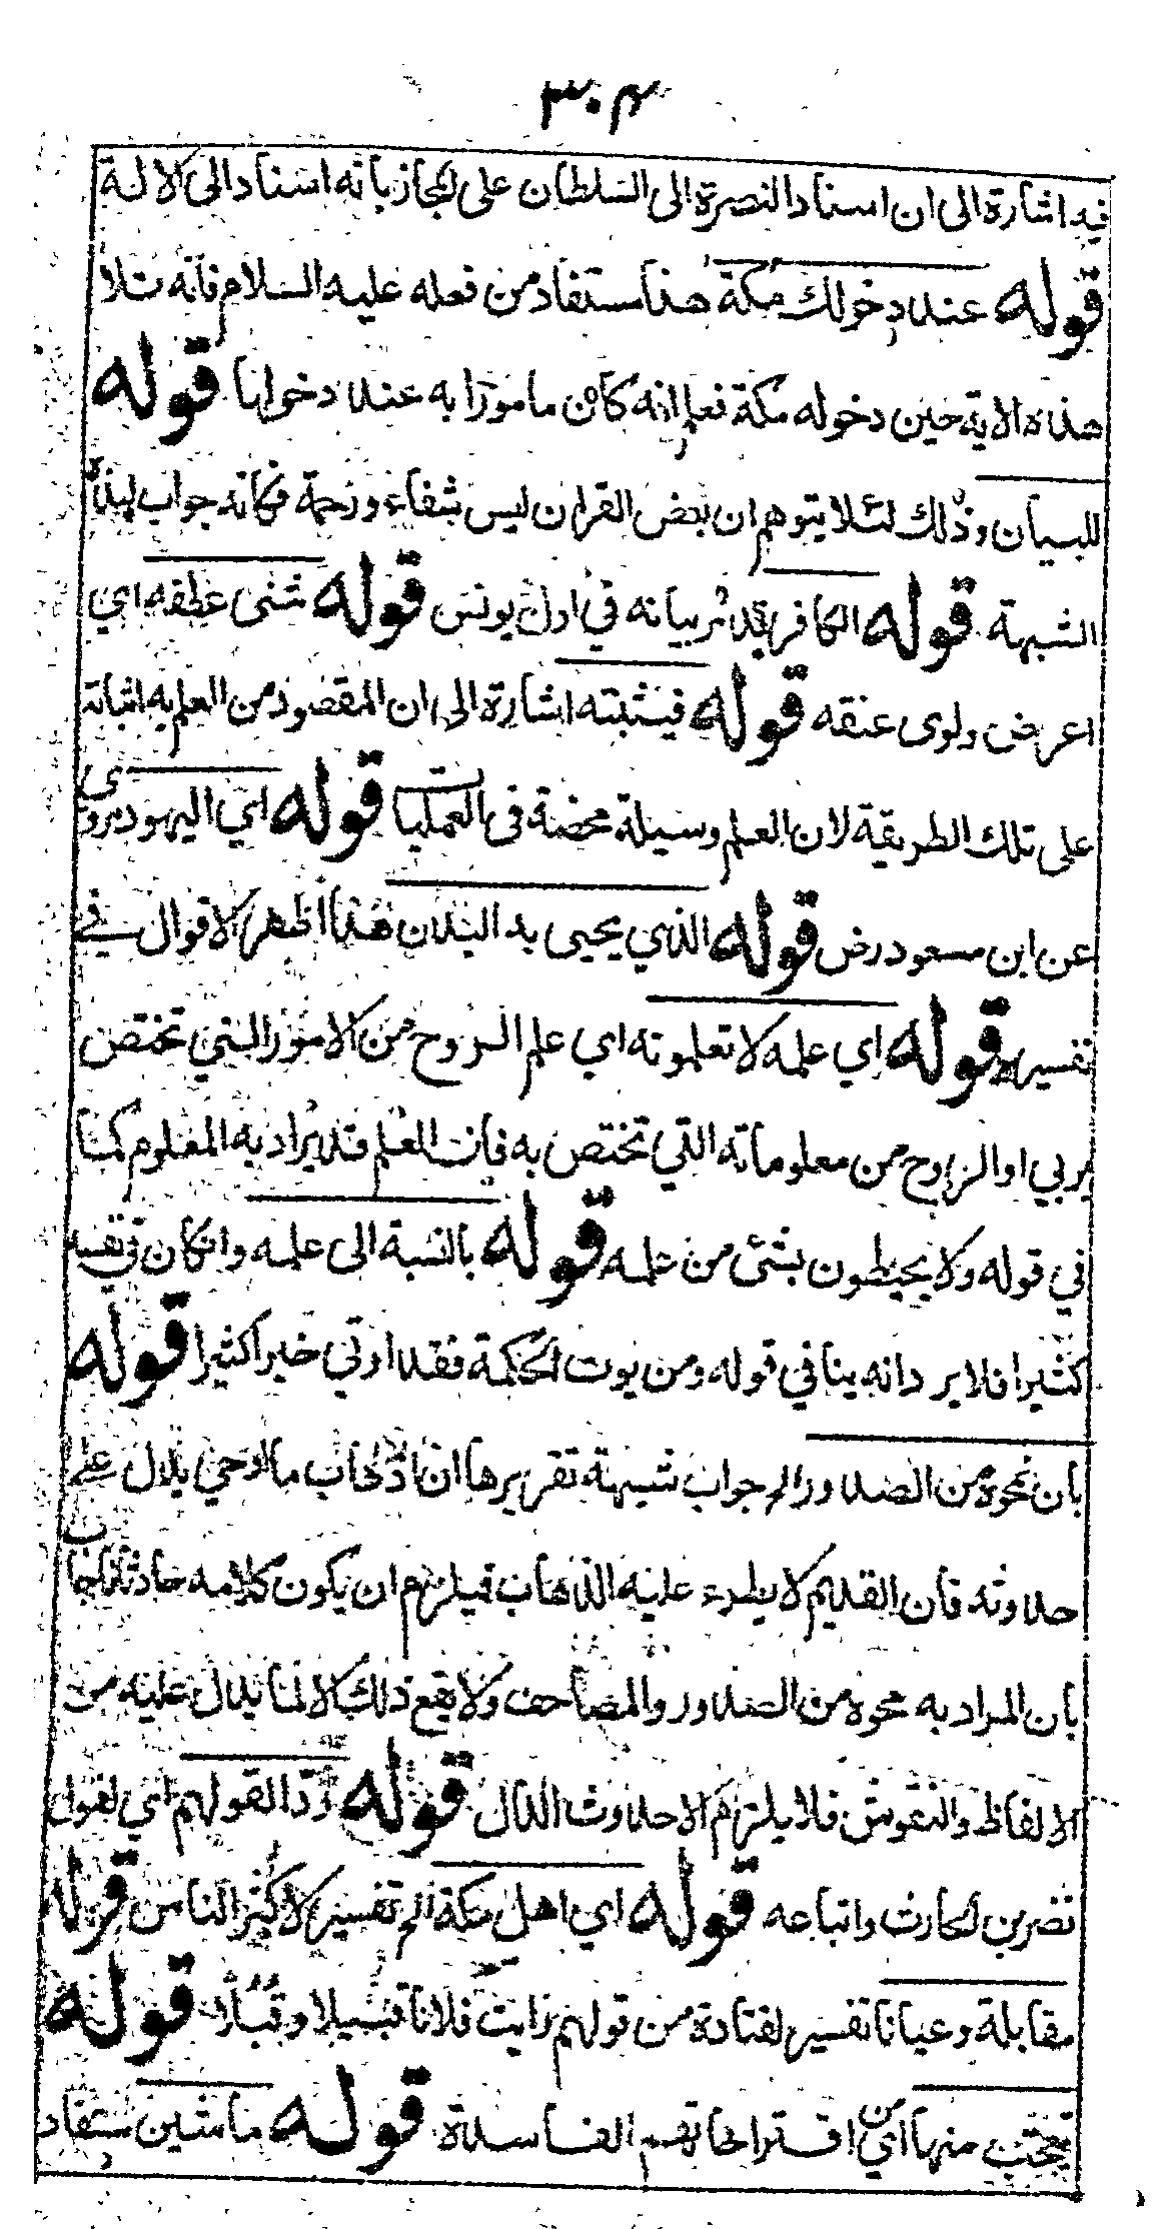 ٣٠٤
فيه اشارة الى ان اسناد النصرة الى السلطان على المجاز بانه اسناد الى الالة
قوله عند دخولك مكة هذا مستفاد من فعله عليه السلام فانه تلا
هذه الاية حين دخوله مكة فعلم انه كان مامورا به عند دخولها قوله
للبيان وذلك لئلا يتوهم ان بعض القران ليس بشفاء ورحمة فكانه جواب لهذه
الشبهة قوله الكافر قد مر بيانه في اول يونس قوله ثنى عطفه اي
اعرض ولوى عنقه قوله فيثبته اشارة الى ان المقصود من العلم به اثباته
على تلك الطريقة لان العلم وسيلة محضة في العمليات قوله اي اليهود مروى
عن ابن مسعود رض قوله الذي يحيى به البدن هذا اظهر الاقوال في
تفسيره قوله اي علمه لا تعلمونه اي علم الروح من الامور التي تختص
بربي او الروح من معلوماته التي تختص به فان العلم قد يراد به المعلوم كما
في قوله ولا يحيطون بشئ من علمه قوله بالنسبة الى علمه وان كان في نفسه
كثيرا فلا يرد انه ينافي قوله ومن يوت الحكمة فقد اوتي خيرا كثيرا قوله
بان نمحوه من الصدور الخ جواب شبهة تقريرها ان اذهاب ما اوحي يدل على
حدوثه فان القديم لا يطرء عليه الذهاب فيلزم ان يكون كلامه حادثا فاجاب
بان المراد به محوه من الصدور والمصاحف ولا يقع ذلك الا لما يدل عليه من
الالفاظ والنقوش فلا يلزم الا حدوث الدال قوله ردا لقولهم اي لقول
نضر بن الحارث واتباعه قوله اي اهل مكة الخ تفسير لاكثر الناس قوله
مقابلة وعيانا تفسير لقتادة من قولهم رايت فلانا قبيلا وقبلا قوله
تعجب منها اي من اقتراحاتهم الفاسدة قوله ماشين مستفاد